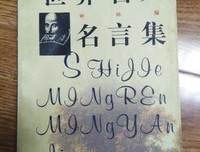 世界名人
名言集
SHiJIe
MINgREn
MINgYAn